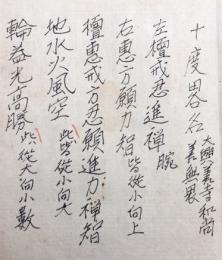 十度畧名 大興善寺和尚善無畏
左檀戒忍進禅 腕
右恵方願力智 皆従小向上
檀恵戒方忍願進力禅智
地水火風空 此皆従小向大
輪蓋光高勝 此従大向小數